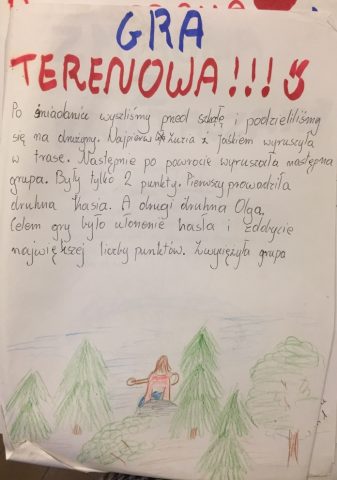 GRA
TERENOWA!!!
Po śniadaniu wyszliśmy przed szkołę i podzieliliśmy
się na drużyny. Najpierw Zuzia z Jaśkiem wyruszyła
w trasę. Następnie po powrocie wyruszała następna
grupa. Były tylko 2 punkty. Pierwszy prowadziła
druhna Kasia. A drugi druhna Olga.
Celem gry było ułożenie hasła i zdobycie
największej liczby punktów. Zwyciężyła grupa